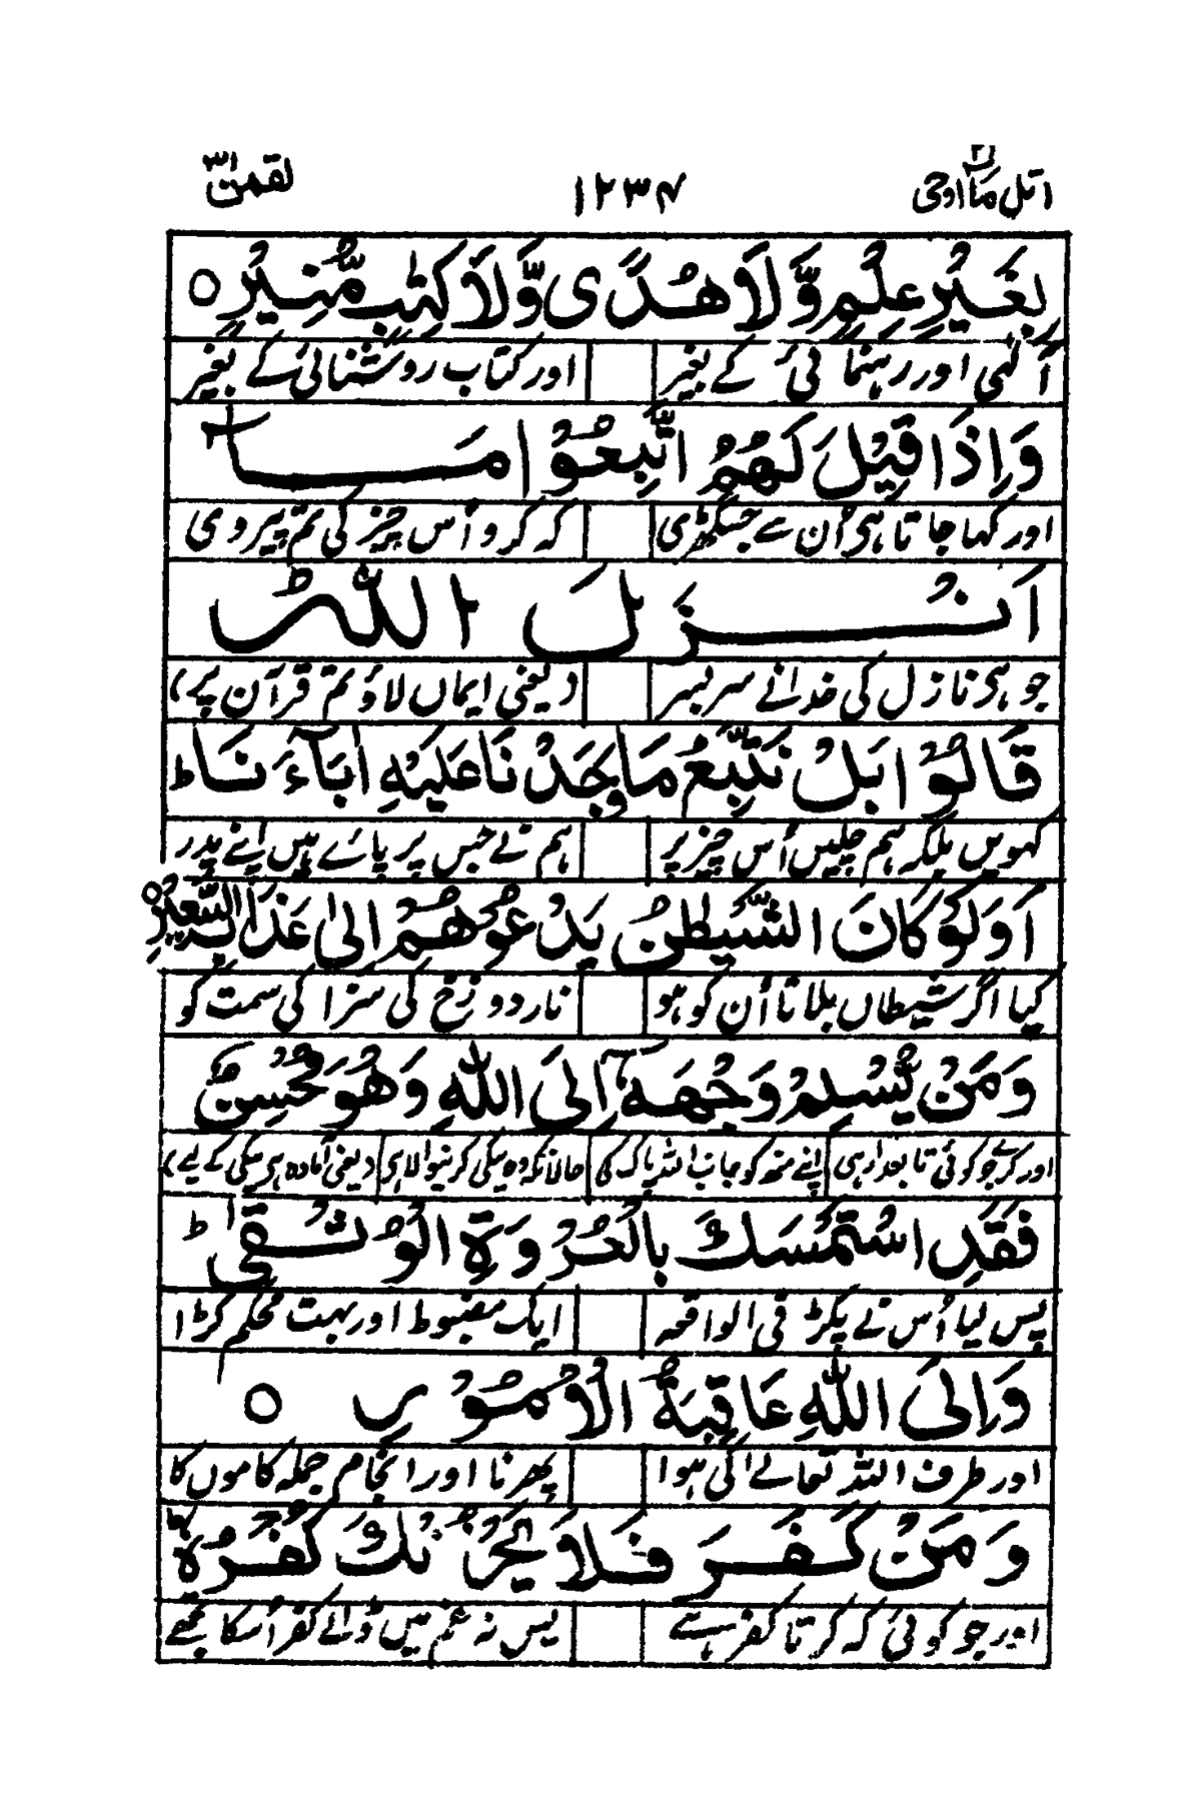 اتل ما اوحی ۲۱ ۱۲۳۴ لقمٰن ۳۱
بِغَيْرِ عِلْمٍ وَّلَا هُدًى وَّلَا كِتٰبٍ مُّنِيْرٍ ○
آگہی اور رہنمائی کے بغیر اور کتاب روشنائی کے بغیر
وَاِذَا قِيْلَ لَهُمُ اتَّبِعُوْا مَـــآ
اور کہا جاتا ہی اُن سے جس گھڑی کہ کرو اُس چیز کی تم پیروی
اَنْـــزَلَ اللّٰهُ ط
جو ہی نازل کی خدانے سربسر (یعنی ایماں لاؤ تم قرآن پر)
قَالُوْا بَلْ نَتَّبِعُ مَا وَجَدْنَا عَلَيْهِ اٰبَآءَنَا ط
کہویں بلکہ ہم چلیں اُس چیز پر ہم نے جس پر پائے ہیں اپنے پدر
اَوَلَوْ كَانَ الشَّيْطٰنُ يَدْعُوْهُمْ اِلٰى عَذَابِ السَّعِيْرِ ○
کیا اگر شیطاں بلاتا اُن کو ہو نار دوزخ کی سزا کی سمت کو
وَمَنْ يُّسْلِمْ وَجْهَهٗٓ اِلَى اللّٰهِ وَهُوَ مُحْسِنٌ
اور کرے جو کوئی تابعدار ہی اپنے منھ کو جانب اللہ پاک کا حالانکہ وہ نیکی کرنیوالا ہی (یعنی آمادہ ہی نیکی کے لیے)
فَقَدِ اسْتَمْسَكَ بِالْعُرْوَةِ الْوُثْقٰى ط
پس لیا اُس نے پکڑ فی الواقعہ ایک مضبوط اور بہت محکم کڑا
وَاِلَى اللّٰهِ عَاقِبَةُ الْاُمُوْرِ ○
اور طرف اللہ تعالےٰ کی ہوا پھرنا اور انجام جملہ کاموں کا
وَمَنْ كَفَرَ فَلَا يَحْزُنْكَ كُفْرُهٗ ط
اور جو کوئی کہ کرتا کفر ہے پس نہ غم میں ڈالے کفر اُسکا تجھے